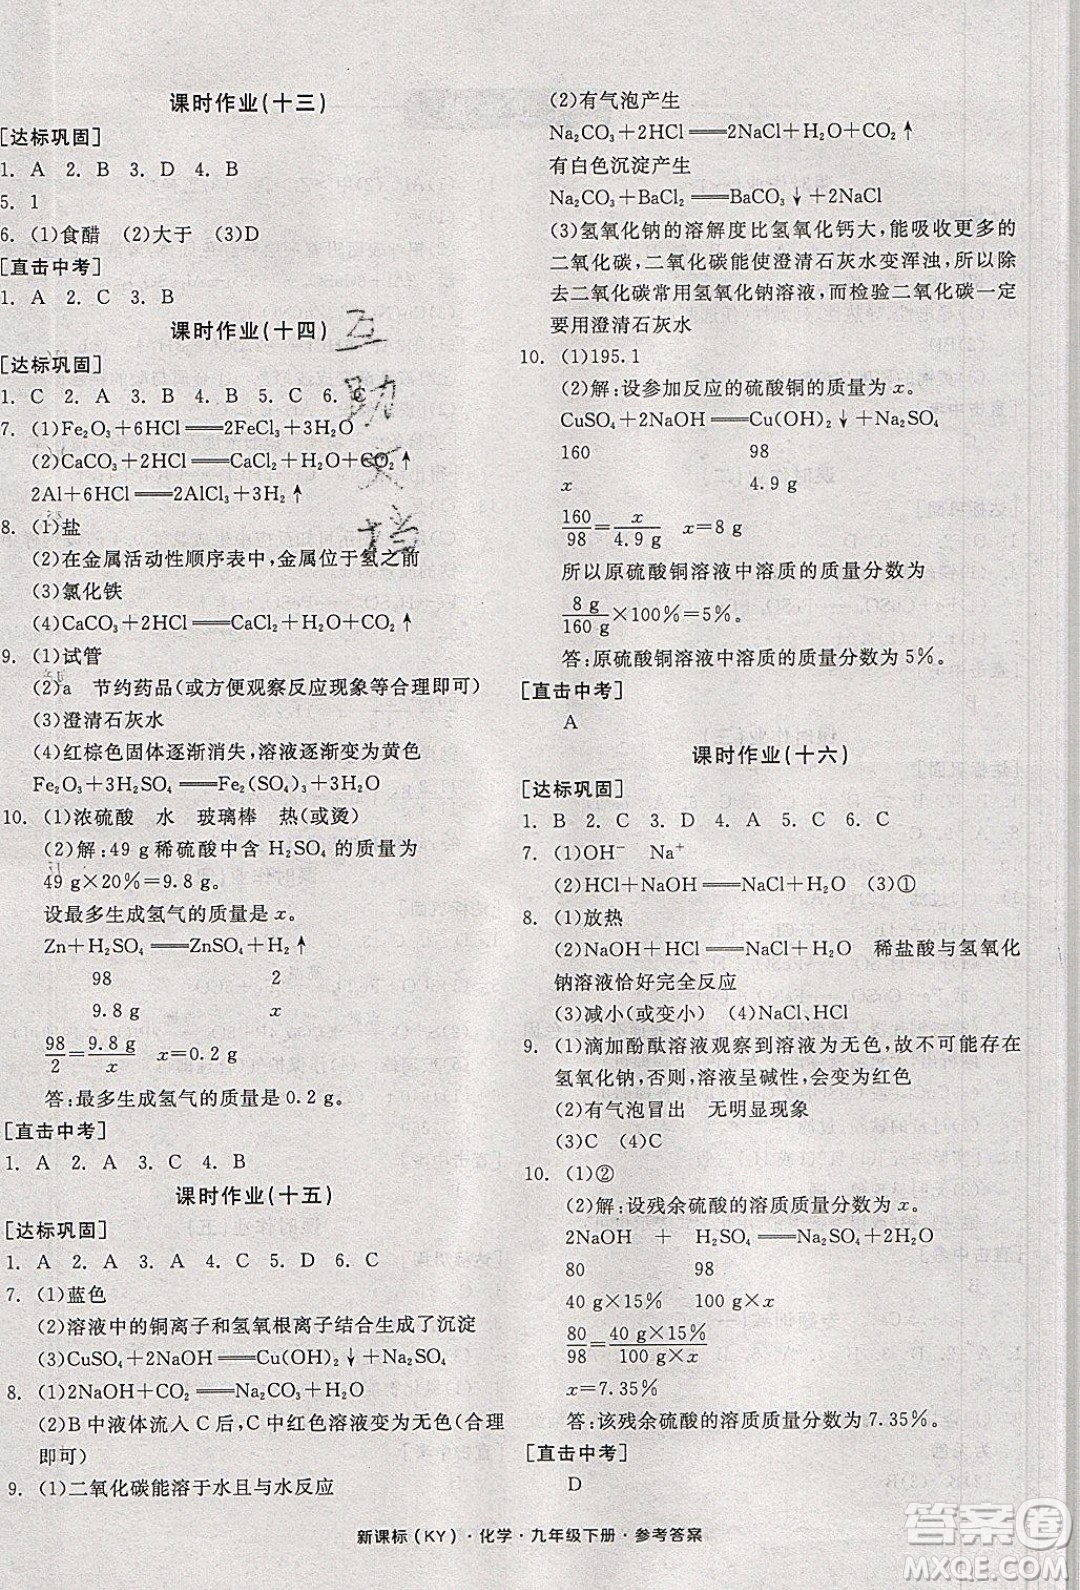 课时作业(十三)
[达标巩固]
1. A 2. B 3. D 4. B
5. 1
6. (1)食醋 (2)大于 (3)D
[直击中考]
1. A 2. C 3. B
课时作业(十四)
[达标巩固]
1. C 2. A 3. B 4. B 5. C 6. C
7. (1)Fe₂O₃+6HCl══2FeCl₃+3H₂O
(2)CaCO₃+2HCl══CaCl₂+H₂O+CO₂↑
2Al+6HCl══2AlCl₃+3H₂↑
8. (1)盐
(2)在金属活动性顺序表中,金属位于氢之前
(3)氯化铁
(4)CaCO₃+2HCl══CaCl₂+H₂O+CO₂↑
9. (1)试管
(2)a 节约药品(或方便观察反应现象等合理即可)
(3)澄清石灰水
(4)红棕色固体逐渐消失,溶液逐渐变为黄色
Fe₂O₃+3H₂SO₄══Fe₂(SO₄)₃+3H₂O
10. (1)浓硫酸 水 玻璃棒 热(或烫)
(2)解:49 g稀硫酸中含 H₂SO₄ 的质量为
49 g×20%=9.8 g。
设最多生成氢气的质量是 x。
Zn+H₂SO₄══ZnSO₄+H₂↑
98 2
9.8 g x
98/2=9.8 g/x x=0.2 g
答:最多生成氢气的质量是 0.2 g。
[直击中考]
1. A 2. A 3. C 4. B
课时作业(十五)
[达标巩固]
1. A 2. A 3. A 4. A 5. D 6. C
7. (1)蓝色
(2)溶液中的铜离子和氢氧根离子结合生成了沉淀
(3)CuSO₄+2NaOH══Cu(OH)₂↓+Na₂SO₄
8. (1)2NaOH+CO₂══Na₂CO₃+H₂O
(2)B 中液体流入 C 后,C 中红色溶液变为无色(合理
即可)
9. (1)二氧化碳能溶于水且与水反应
(2)有气泡产生
Na₂CO₃+2HCl══2NaCl+H₂O+CO₂↑
有白色沉淀产生
Na₂CO₃+BaCl₂══BaCO₃↓+2NaCl
(3)氢氧化钠的溶解度比氢氧化钙大,能吸收更多的
二氧化碳,二氧化碳能使澄清石灰水变浑浊,所以除
去二氧化碳常用氢氧化钠溶液,而检验二氧化碳一定
要用澄清石灰水
10. (1)195.1
(2)解:设参加反应的硫酸铜的质量为 x。
CuSO₄+2NaOH══Cu(OH)₂↓+Na₂SO₄
160 98
x 4.9 g
160/98=x/4.9 g x=8 g
所以原硫酸铜溶液中溶质的质量分数为
8 g/160 g×100%=5%。
答:原硫酸铜溶液中溶质的质量分数为 5%。
[直击中考]
A
课时作业(十六)
[达标巩固]
1. B 2. B 3. D 4. A 5. C 6. C
7. (1)OH⁻ Na⁺
(2)HCl+NaOH══NaCl+H₂O (3)①
8. (1)放热
(2)NaOH+HCl══NaCl+H₂O 稀盐酸与氢氧化
钠溶液恰好完全反应
(3)减小(或变小) (4)NaCl、HCl
9. (1)滴加酚酞溶液观察到溶液为无色,故不可能存在
氢氧化钠,否则,溶液呈碱性,会变为红色
(2)有气泡冒出 无明显现象
(3)C (4)C
10. (1)②
(2)解:设残余硫酸的溶质质量分数为 x。
2NaOH + H₂SO₄══Na₂SO₄+2H₂O
80 98
40 g×15% 100 g×x
80/98=40 g×15%/100 g×x
x=7.35%
答:该残余硫酸的溶质质量分数为 7.35%。
[直击中考]
D
新课标(KY)·化学·九年级下册·参考答案
互
助
文
档
答案圈
MXQE.COM